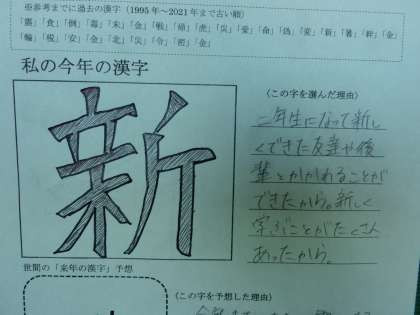 ※参考までに過去の漢字（1995年～2021年まで古い順）
「震」「食」「倒」「毒」「末」「金」「戦」「帰」「虎」「災」「愛」「命」「偽」「変」「新」「暑」「絆」「金」
「輪」「税」「安」「金」「北」「災」「令」「密」「金」
私の今年の漢字
新
（この字を選んだ理由）
二年生になって新し
くできた友達や後
輩とかかわることが
できたから。新しく
学ぶことがたくさん
あったから。
世間の「来年の漢字」予想
（この字を予想した理由）